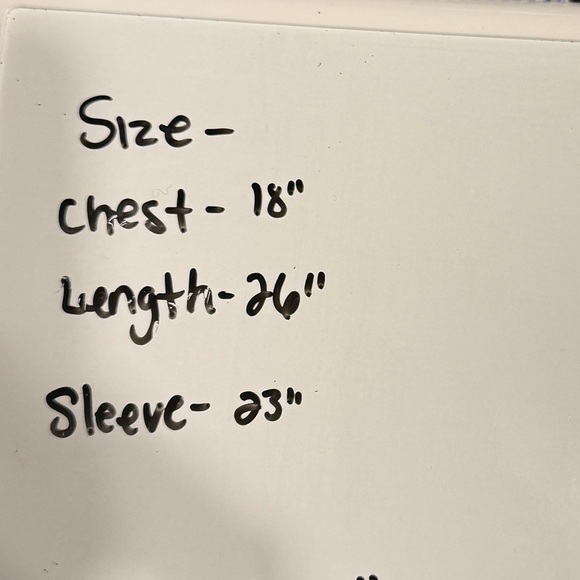 Size -
Chest - 18"
Length - 26"
Sleeve - 23"
"